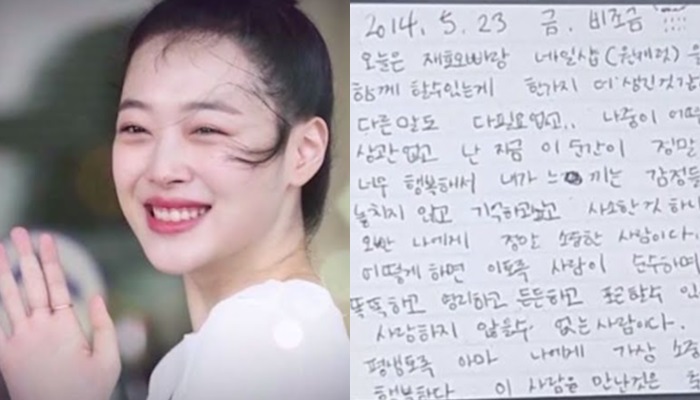 2014. 5. 23 금. 비조금
오늘은 재효오빠랑 네일샵
함께 할수있는게 한가지 더 생긴것
다른말도 다필요없고.. 나중이
상관없고 난 지금 이 순간이 정말
너무 행복해서 내가 느끼는 감정들
놓치지 않고 기억하고싶고 사소한것 하나
오빤 나에게 정말 소중한 사람이다.
어떻게 하면 이토록 사람이 순수하며
똑똑하고 영리하고 든든하고 포근할수 있
사랑하지 않을수 없는사람이다.
평생토록 아마 나에게 가장 소중
행복하다 이 사람을 만난것은